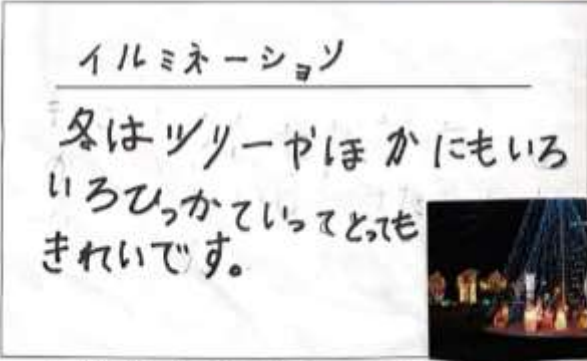 イルミネーション
冬はツリーやほかにもいろ
いろひっかていってとっても
きれいです。